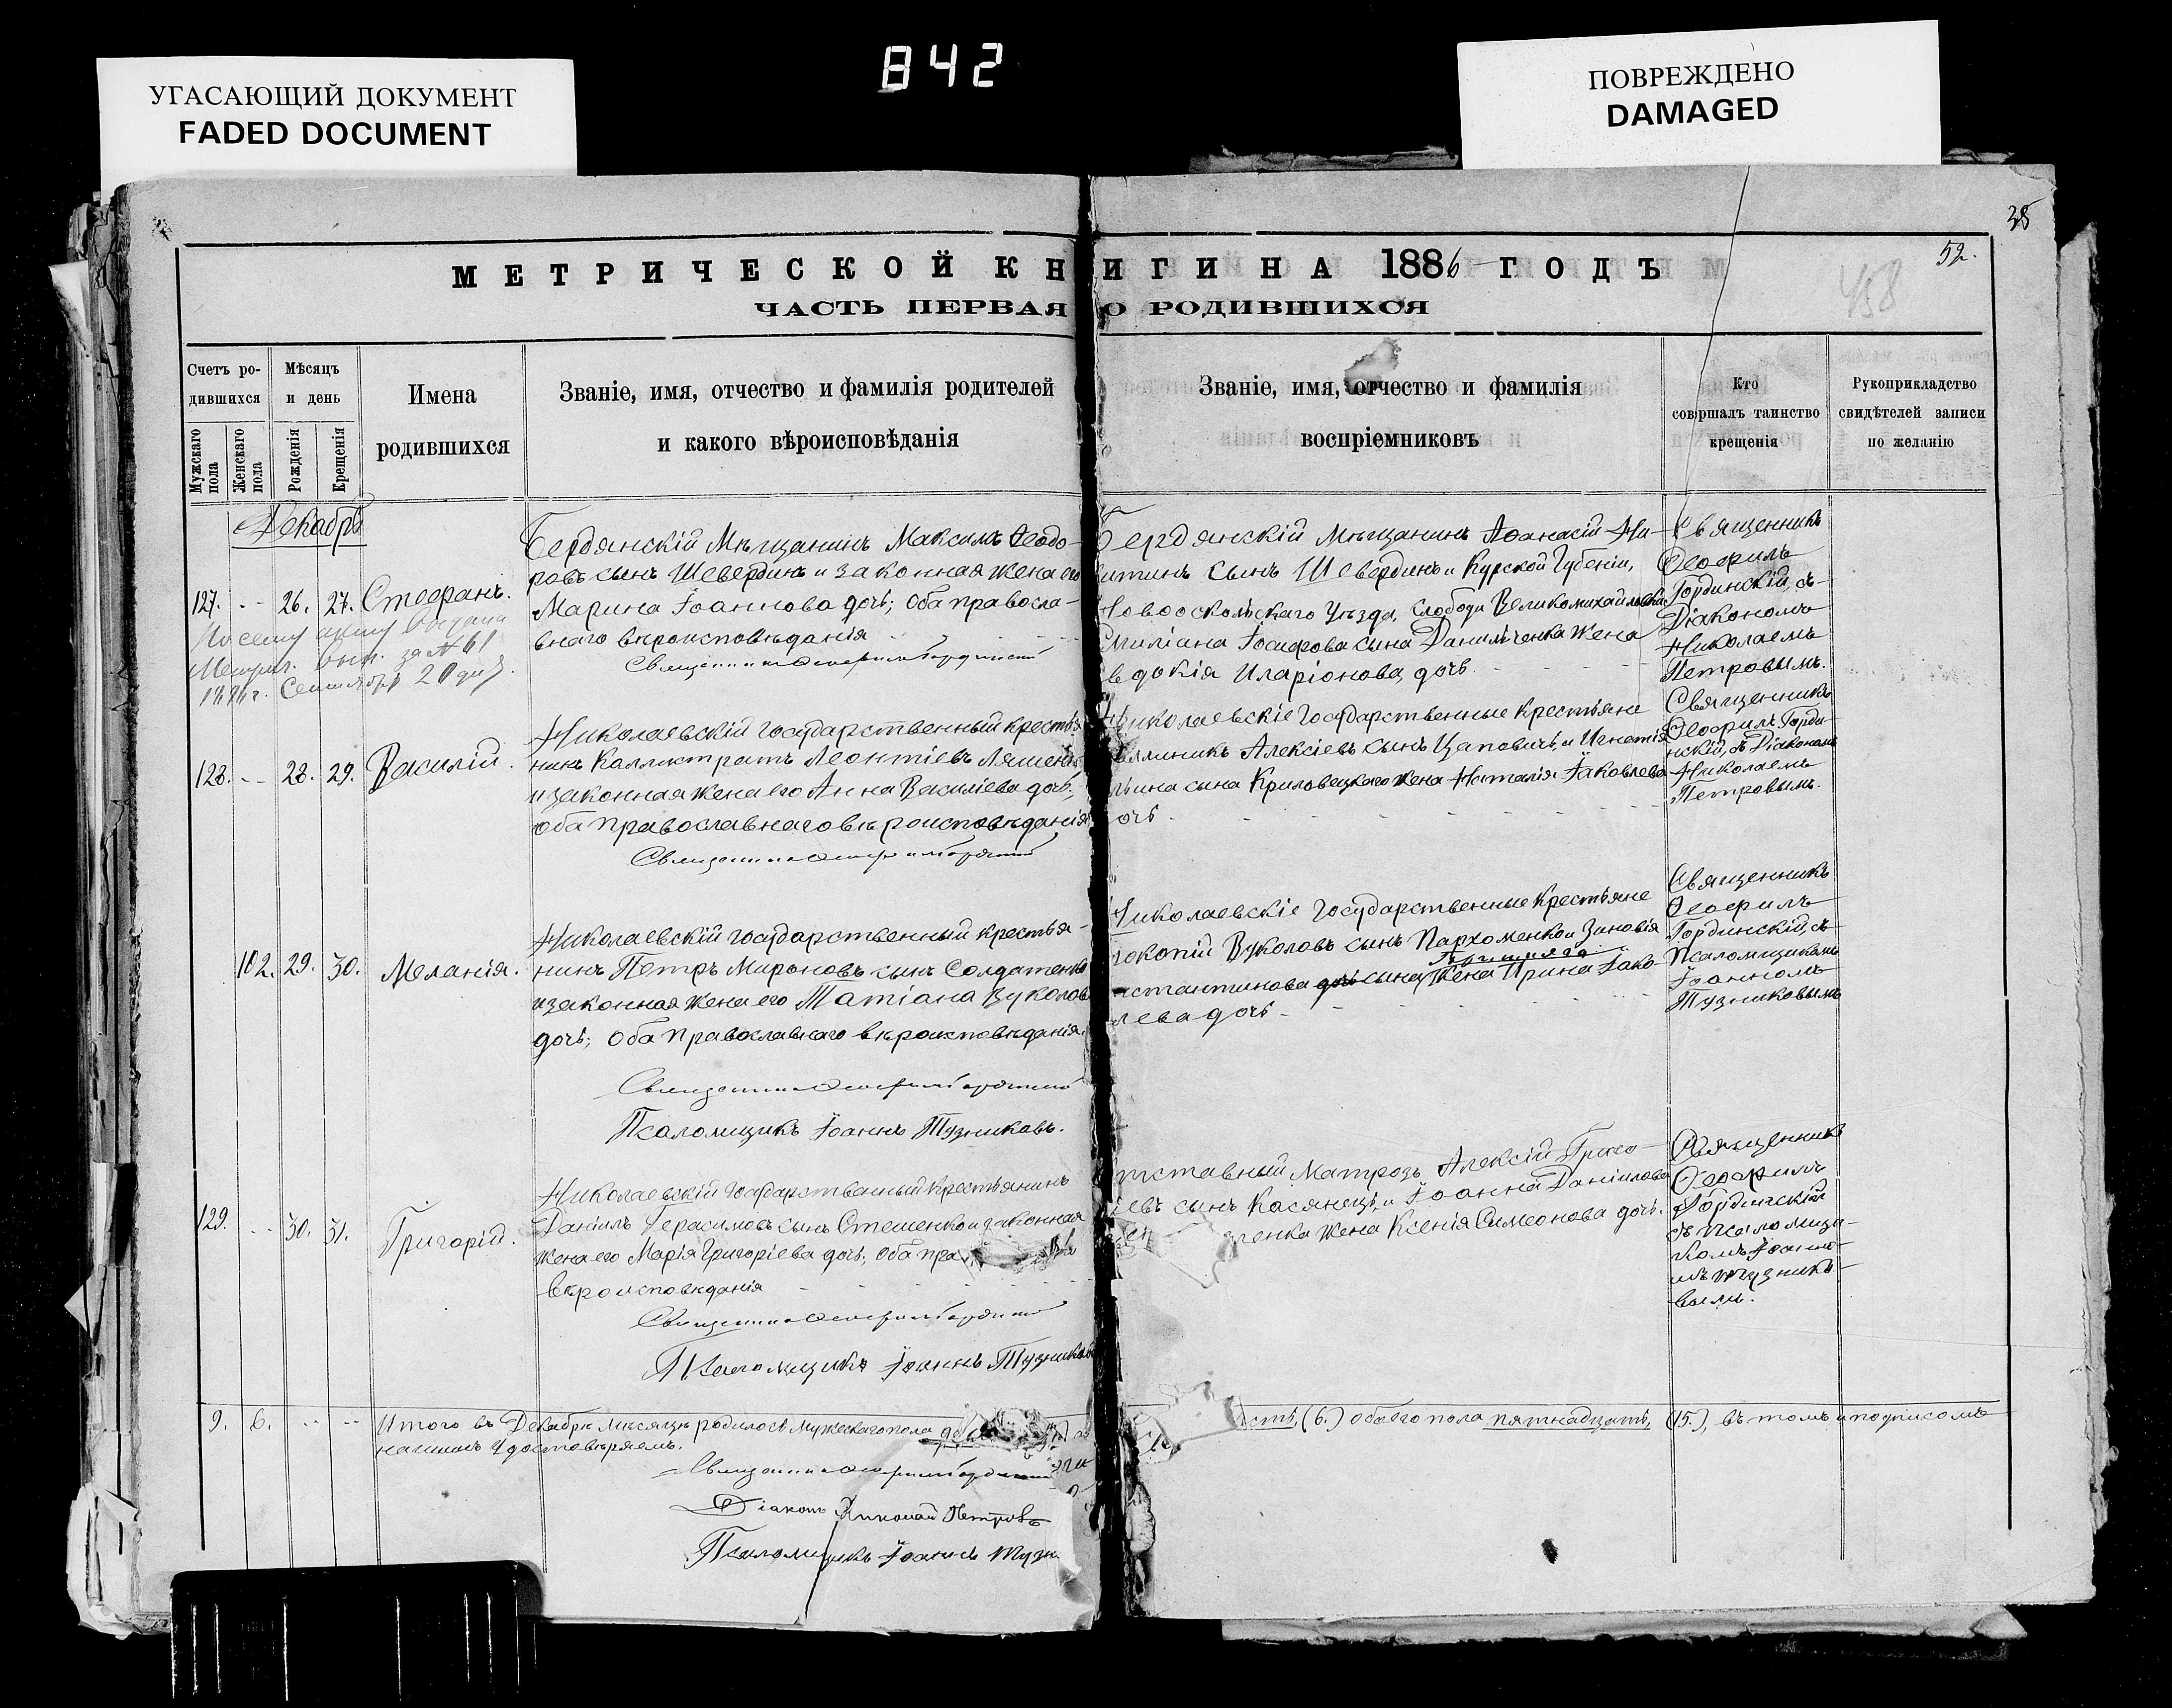 842
УГАСАЮЩИЙ ДОКУМЕНТ
FADED DOCUMENT
ПОВРЕЖДЕНО
DAMAGED
38
52.
458
МЕТРИЧЕСКОЙ КНИГИ НА 1886 ГОДЪ
ЧАСТЬ ПЕРВАЯ О РОДИВШИХСЯ
Счетъ родившихся
Мужскаго пола
Женскаго пола
Мѣсяцъ и день
Рожденія
Крещенія
Имена родившихся
Званіе, имя, отчество и фамилія родителей
и какого вѣроисповѣданія
Званіе, имя, отчество и фамилія
воспріемниковъ
Кто
совершалъ таинство
крещенія
Рукоприкладство
свидѣтелей записи
по желанію
Декабрь
127. 26. 27. Стефанъ.
По сему акту выдана
Метрич. вып. за № 61
Сентября 20 дня
Бердянскій Мѣщанинъ Максимъ Ѳеодо-
ровъ сынъ Шевердинъ и законная жена его
Марина Іоаннова дочь; оба правосла-
внаго вѣроисповѣданія
Бердянскій Мѣщанинъ Аѳанасій Ни-
китинъ сынъ Шевердинъ и Курской Губерніи,
Новооскольскаго Уѣзда, Слободы Великомихайловки
Емиліана Іосифова сына Данильченка жена
Евдокія Иларіонова дочь
Священникъ
Ѳеофилъ
Гординскій, съ
Діакономъ
Николаемъ
Петровымъ.
128. 28. 29. Василій.
Николаевскій государственный крестья-
нинъ Каллистратъ Леонтіевъ Ляшенко
и законная жена его Анна Василіева дочь;
оба православнаго вѣроисповѣданія
Николаевскіе Государственные Крестьяне
Алексіевъ сынъ Цаповичъ, и Игнатія
сына Криловецкаго жена Наталія Іаковлева
дочь
Священникъ
Ѳеофилъ Горди-
нскій, съ Діакономъ
Николаемъ
Петровымъ.
102. 29. 30. Меланія.
Николаевскій государственный крестья-
нинъ Петръ Мироновъ сынъ Солдатенко
и законная жена его Татіана Вуколова
дочь; оба православнаго вѣроисповѣданія.
Псаломщикъ Іоаннъ Тузниковъ.
Николаевскіе Государственные Крестьяне
Прокопій Вуколовъ сынъ Пархоменко и Зиновія
Константинова сына жена Ирина Іако-
влева дочь
Священникъ
Ѳеофилъ
Гординскій, съ
Псаломщикомъ
Іоанномъ
Тузниковымъ
129. 30. 31. Григорій.
Николаевскій Государственный Крестьянинъ
Даніилъ Герасимовъ сынъ Стешенко и законная
жена его Марія Григоріева дочь; оба пра
вѣроисповѣданія
Псаломщикъ Іоаннъ Тузниковъ
Отставный Матрозъ Алексій Григо-
рьевъ сынъ Касянецъ, и Іоанна Даніилова
ленка жена Ксенія Симеонова дочь.
Священникъ
Ѳеофилъ
Гординскій
съ Псаломщи-
комъ Іоанно-
мъ Тузнико-
вымъ.
9. 6. Итого въ Декабрѣ мѣсяцѣ родилось мужескаго пола
шесть, (6.) обоего пола пятнадцать, (15.), въ томъ и подписомъ
нашимъ удостовѣряемъ.
Діаконъ Николай Петровъ
Псаломщикъ Іоаннъ Тузн